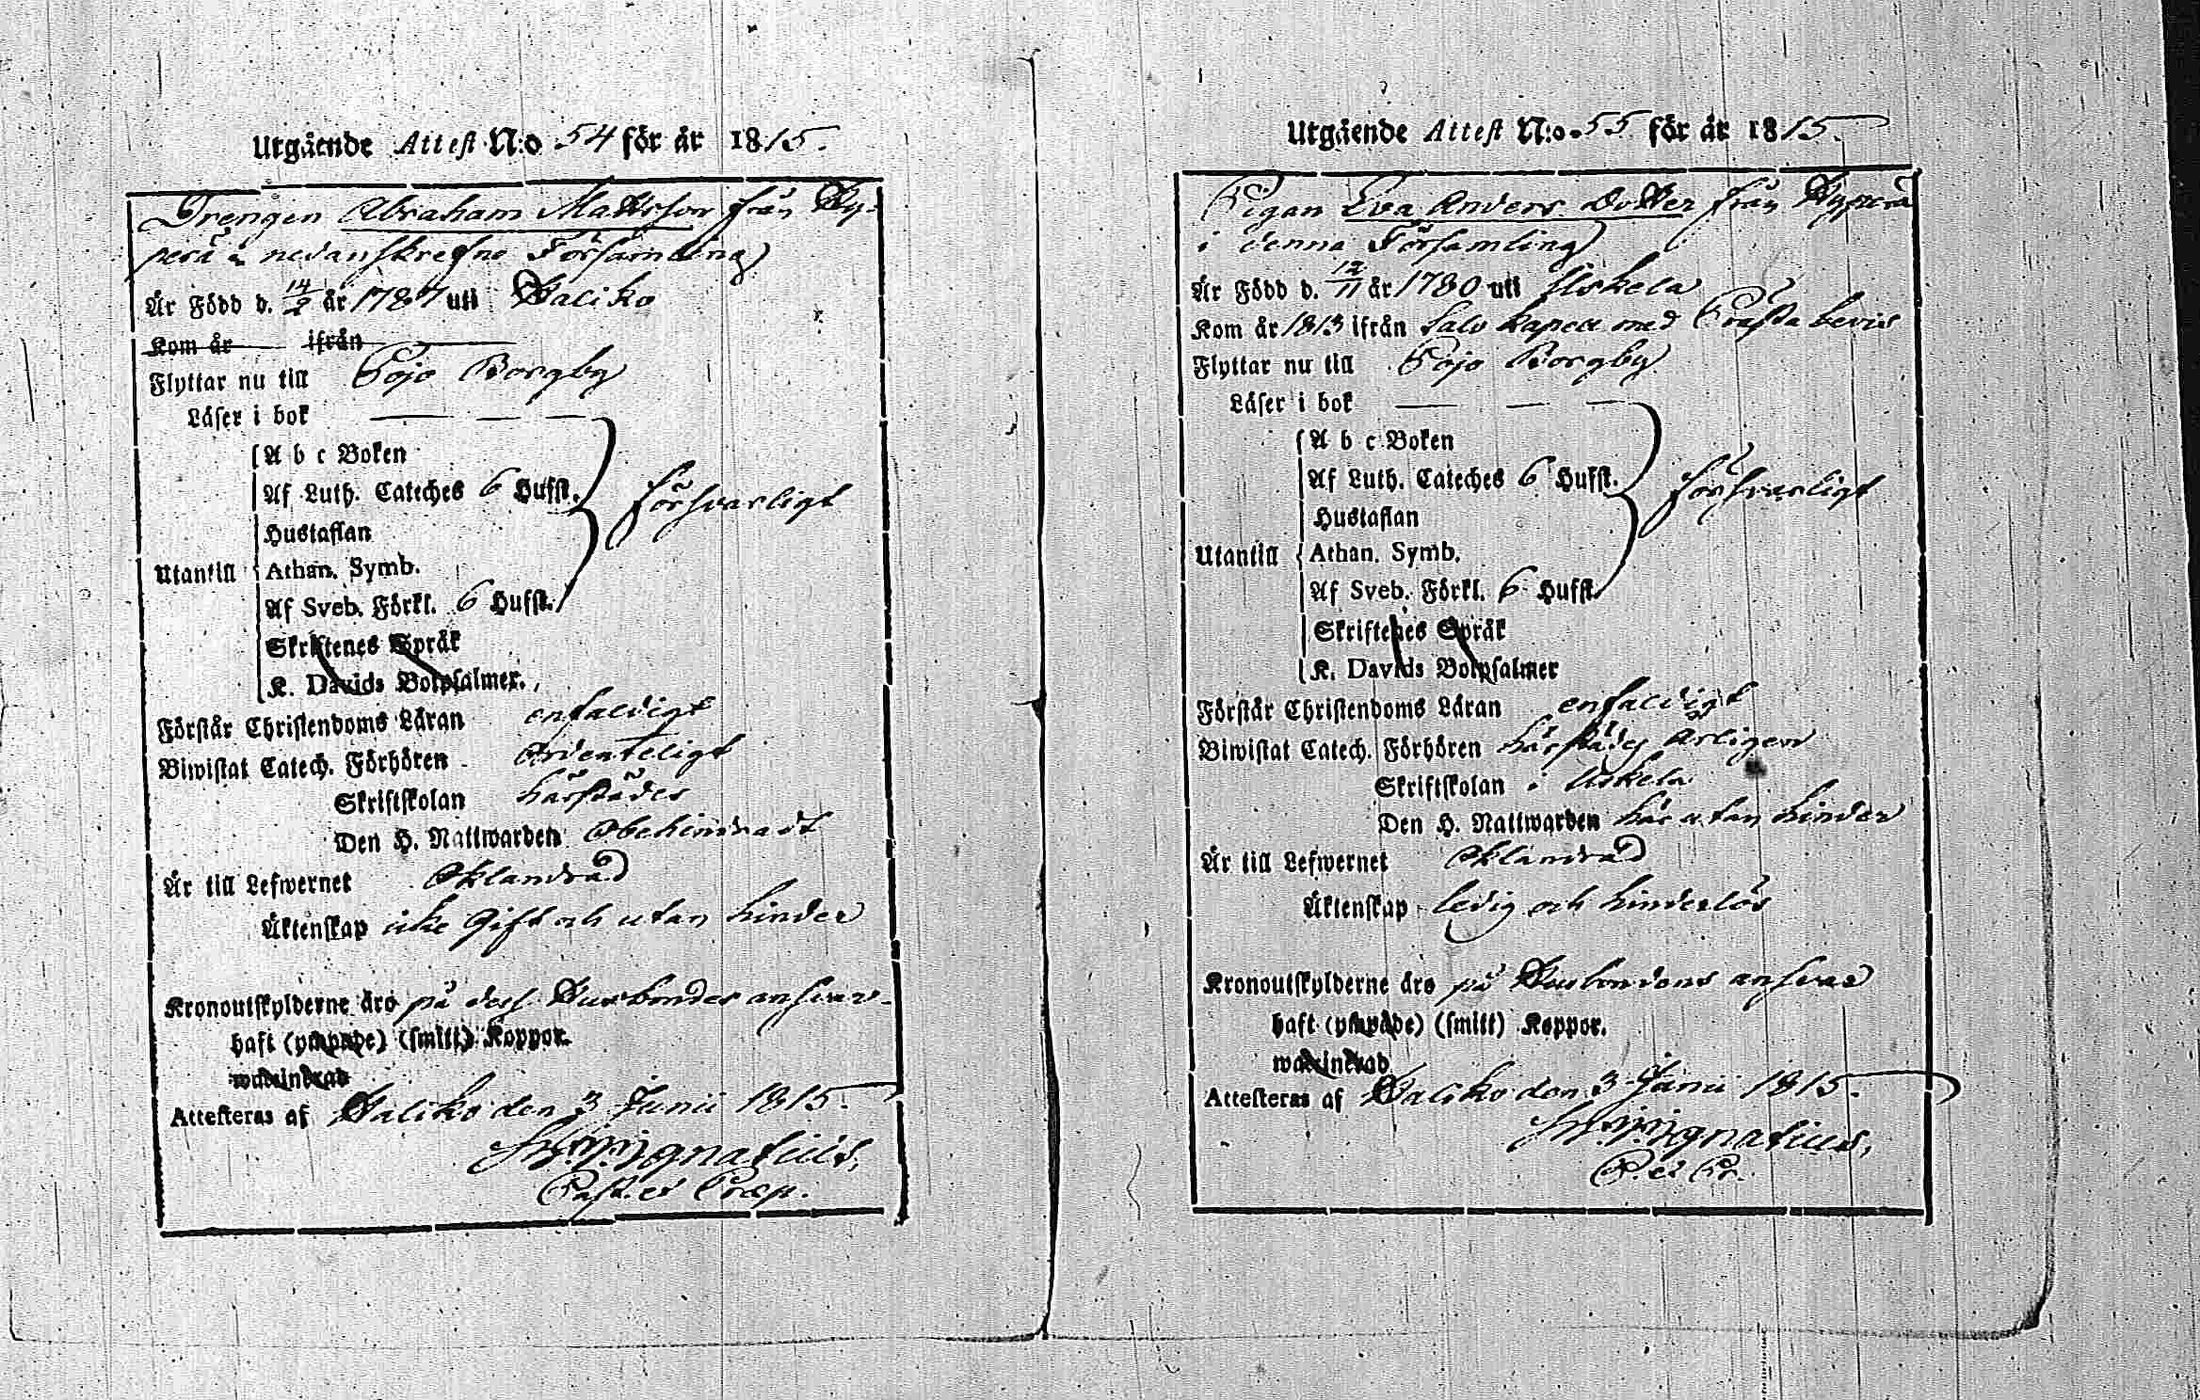 Utgående Attest N:o 54 för år 1815.
Drengen Abraham Mattsson från Hy-
perä i nedanskrefne Församling
Är Född d. 14/2 år 1787 uti Haliko
Kom år ifrån
Flyttar nu till Pojo Borgby
Läser i bok
A b c Boken
Af Luth. Cateches 6 Hufst.
försvarligt
Hustaflan
Utantill Athan. Symb.
Af Sveb. Förkl. 6 Hufst.
Skriftenes Språk
K. Davids Botpsalmer.
Förstår Christendoms Läran enfaldigt
Biwistat Catech. Förhören Ordenteligt
Skriftskolan härstädes
Den H. Nattwarden Obehindradt
Är till Lefwernet Oklandrad
Äktenskap icke Gift och utan hinder
Kronoutskylderne äro på dess Husbondes answar.
haft (ympade) (smitt) Koppor.
waccinerad
Attesteras af Haliko den 3 Junii 1815.
Ignatius,
Past. et Præp.
Utgående Attest N:o 55 för år 1815.
Pigan Eva Anders Dotter från Hyperä
i denna Församling
Är Född d. 12/11 år 1780 uti Uskela
Kom år 1813 ifrån Salo Kapell med Prästa bevis
Flyttar nu till Pojo Borgby
Läser i bok
A b c Boken
Af Luth. Cateches 6 Hufst.
försvarligt
Hustaflan
Utantill Athan. Symb.
Af Sveb. Förkl. 6 Hufst.
Skriftenes Språk
K. Davids Botpsalmer
Förstår Christendoms Läran enfaldigt
Biwistat Catech. Förhören härstädes Årligen
Skriftskolan i Uskela
Den H. Nattwarden här utan hinder
Är till Lefwernet Oklandrad
Äktenskap ledig och hinderlös
Kronoutskylderne äro på Husbondens answar
haft (ympade) (smitt) Koppor.
waccinerad
Attesteras af Haliko den 3 Junii 1815.
Ignatius,
P. et Pr.